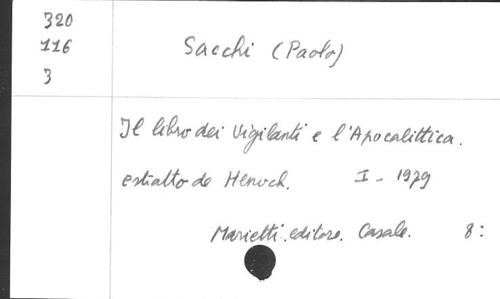 320
116
3
Sacchi (Paolo)
Il libro dei Vigilanti e l'Apocalittica.
estratto de Henoch. I - 1979
Marietti. editore. Casale. 8: